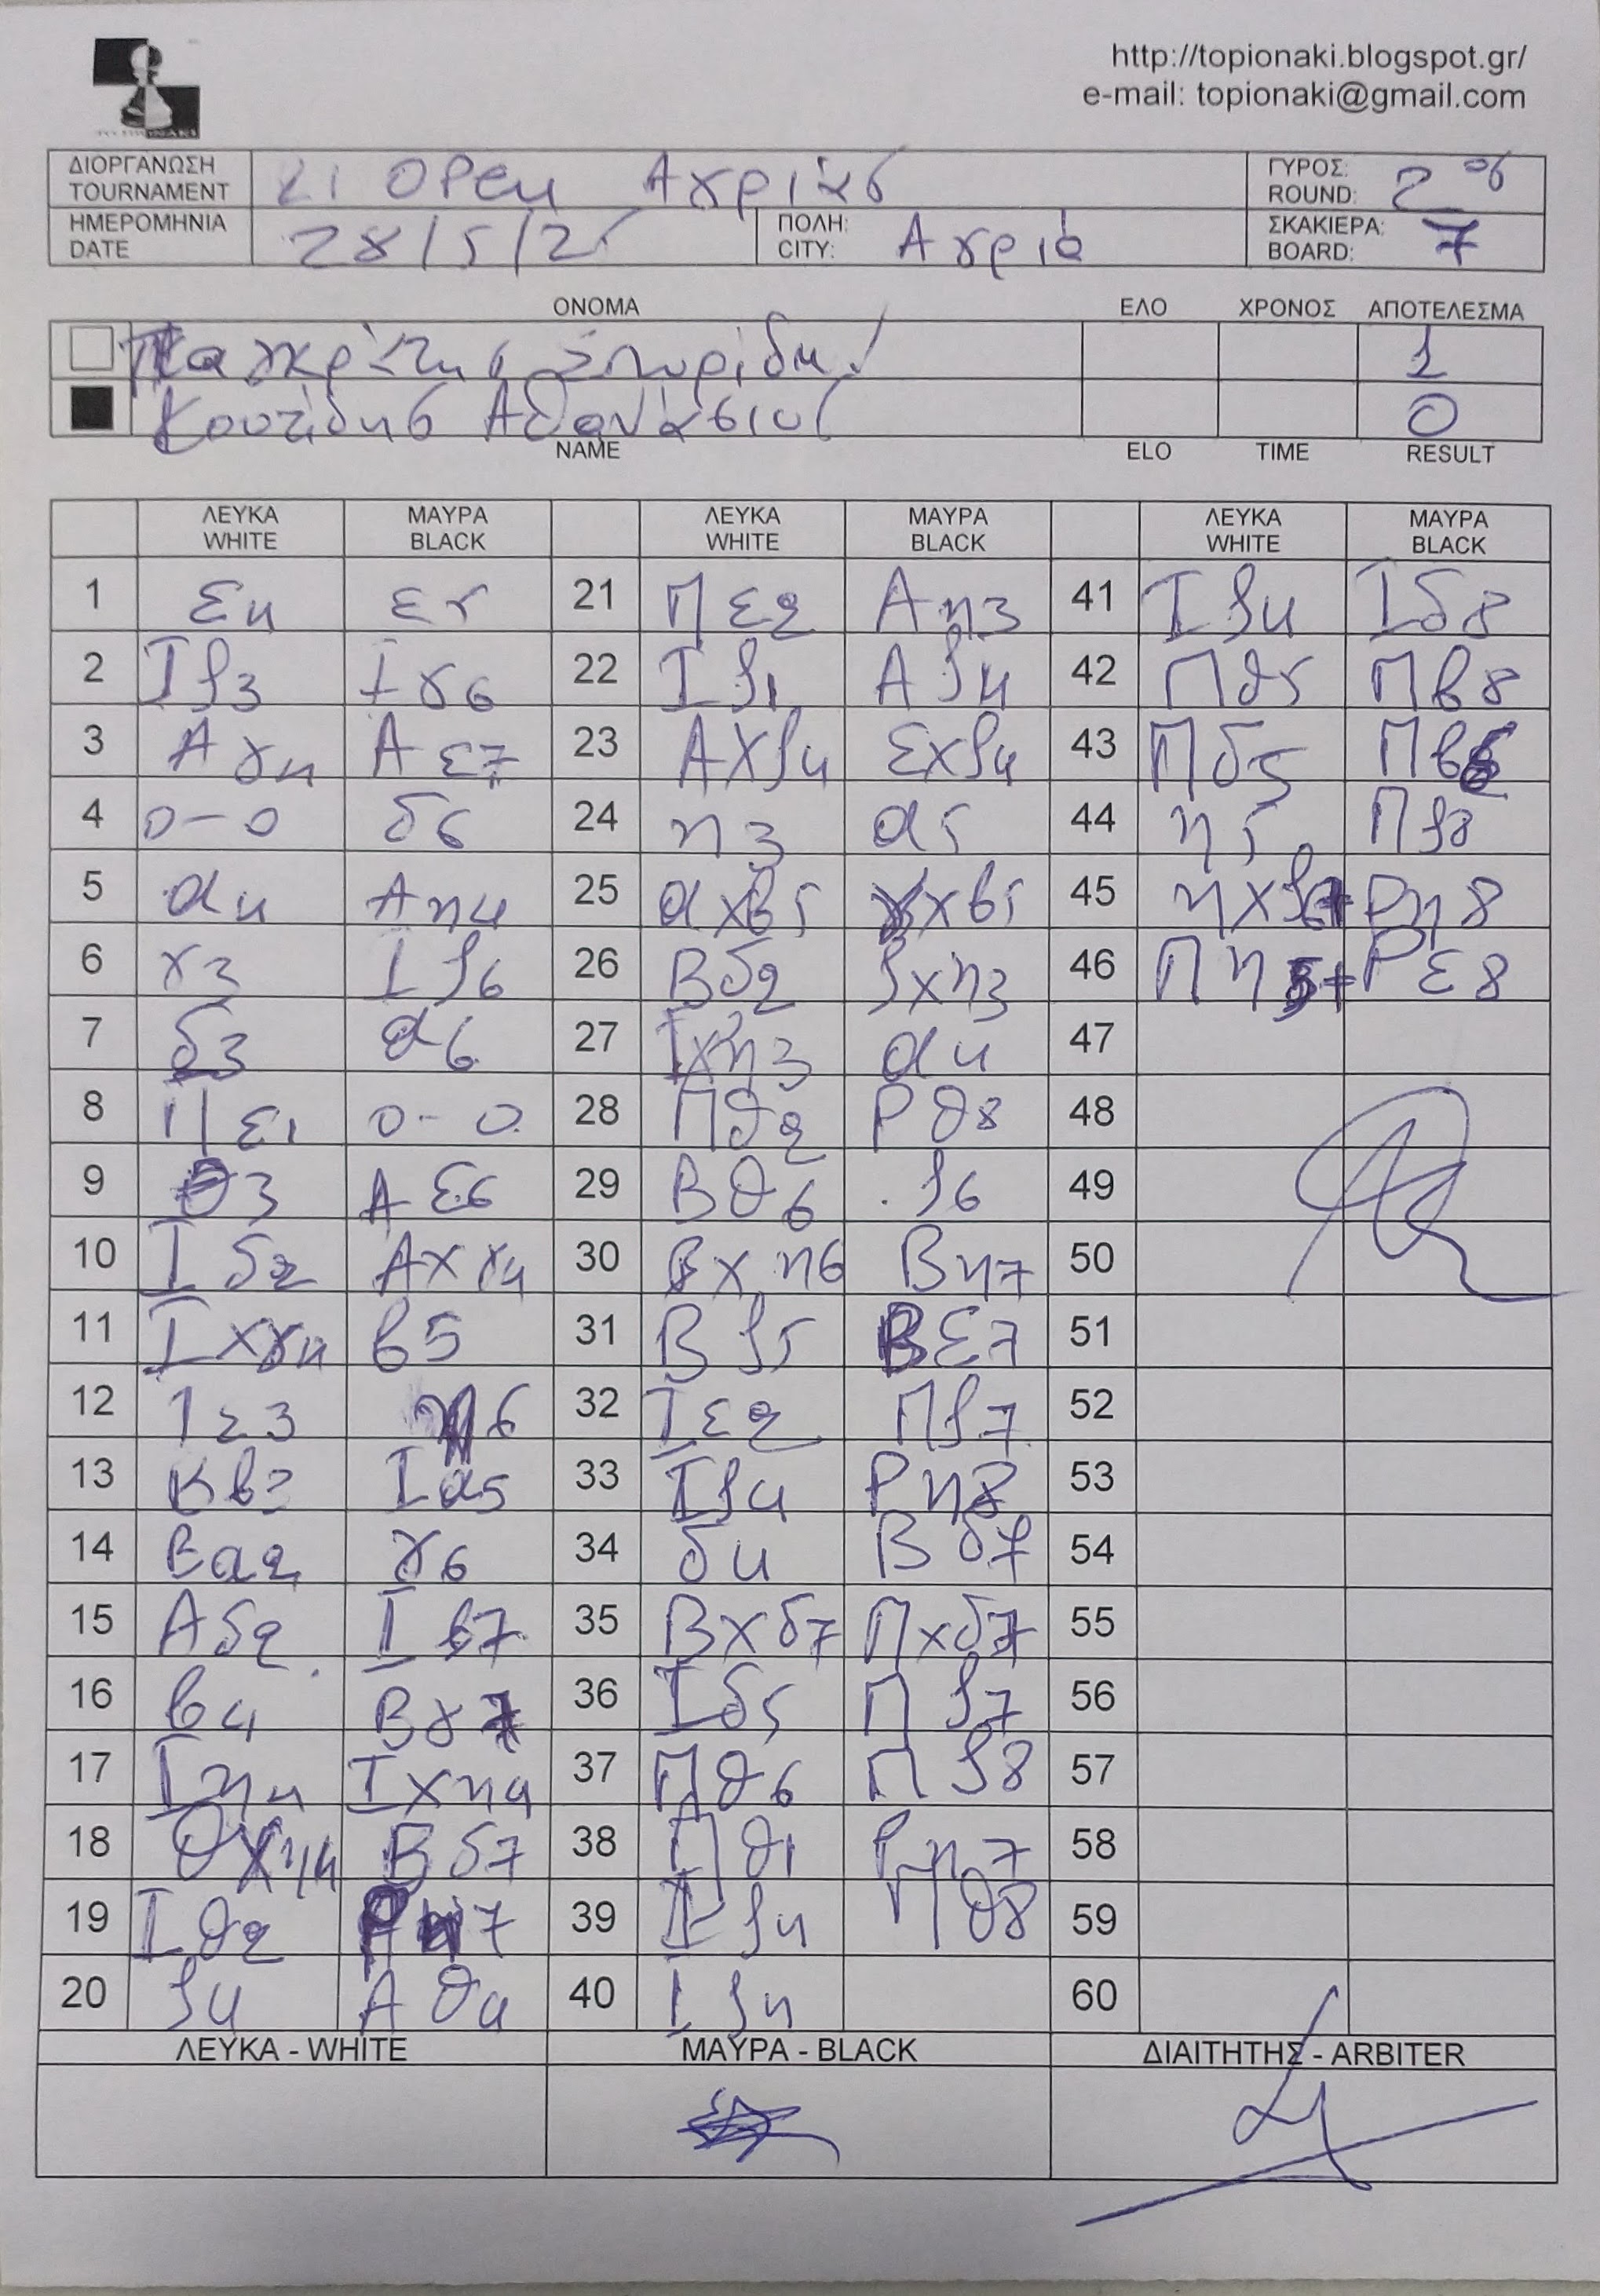 http://topionaki.blogspot.gr/
e-mail: topionaki@gmail.com
ΔΙΟΡΓΑΝΩΣΗ TOURNAMENT 21 Open Αγριάς ΓΥΡΟΣ: ROUND: 2ος
ΗΜΕΡΟΜΗΝΙΑ DATE 28/5/25 ΠΟΛΗ: CITY: Αγριά ΣΚΑΚΙΕΡΑ: BOARD: 7
ΟΝΟΜΑ ΕΛΟ ΧΡΟΝΟΣ ΑΠΟΤΕΛΕΣΜΑ
1
Αθανάσιος 0
NAME ELO TIME RESULT
ΛΕΥΚΑ ΜΑΥΡΑ ΛΕΥΚΑ ΜΑΥΡΑ ΛΕΥΚΑ ΜΑΥΡΑ
WHITE BLACK WHITE BLACK WHITE BLACK
1 ε4 ε5 21 Πε2 Αη3 41 Ιf4 Ιδ8
2 Ιf3 Ιγ6 22 Ιf1 Αf4 42 Πθ5 Πβ8
3 Αγ4 Αε7 23 Αxf4 εxf4 43 Πδ5 Πβ6
4 0-0 δ6 24 η3 α5 44 η5 Πf8
5 α4 Αη4 25 αxβ5 γxβ5 45 ηxf6+ Ρη8
6 γ3 Ιf6 26 Βδ2 fxη3 46 Πη5+ Ρε8
7 δ3 α6 27 Ιxη3 α4 47
8 Πε1 0-0 28 Πθ2 Ρθ8 48
9 θ3 Αε6 29 Βθ6 f6 49
10 Ιδ2 Αxγ4 30 Βxη6 Βη7 50
11 Ιxγ4 β5 31 Βf5 Βε7 51
12 Ιε3 η6 32 Ιε2 Πf7 52
13 Ββ3 Ια5 33 Ιf4 Ρη8 53
14 Βα2 γ6 34 δ4 Βδ7 54
15 Αδ2 Ιβ7 35 Βxδ7 Πxδ7 55
16 β4 Βγ7 36 Ιδ5 Πf7 56
17 Ιη4 Ιxη4 37 Πθ6 Πf8 57
18 θxη4 Βδ7 38 Πθ1 Ρη7 58
19 Ιθ2 39 Ιf4 Πθ8 59
20 f4 Αθ4 40 Ιf4 60
ΛΕΥΚΑ - WHITE ΜΑΥΡΑ - BLACK ΔΙΑΙΤΗΤΗΣ - ARBITER